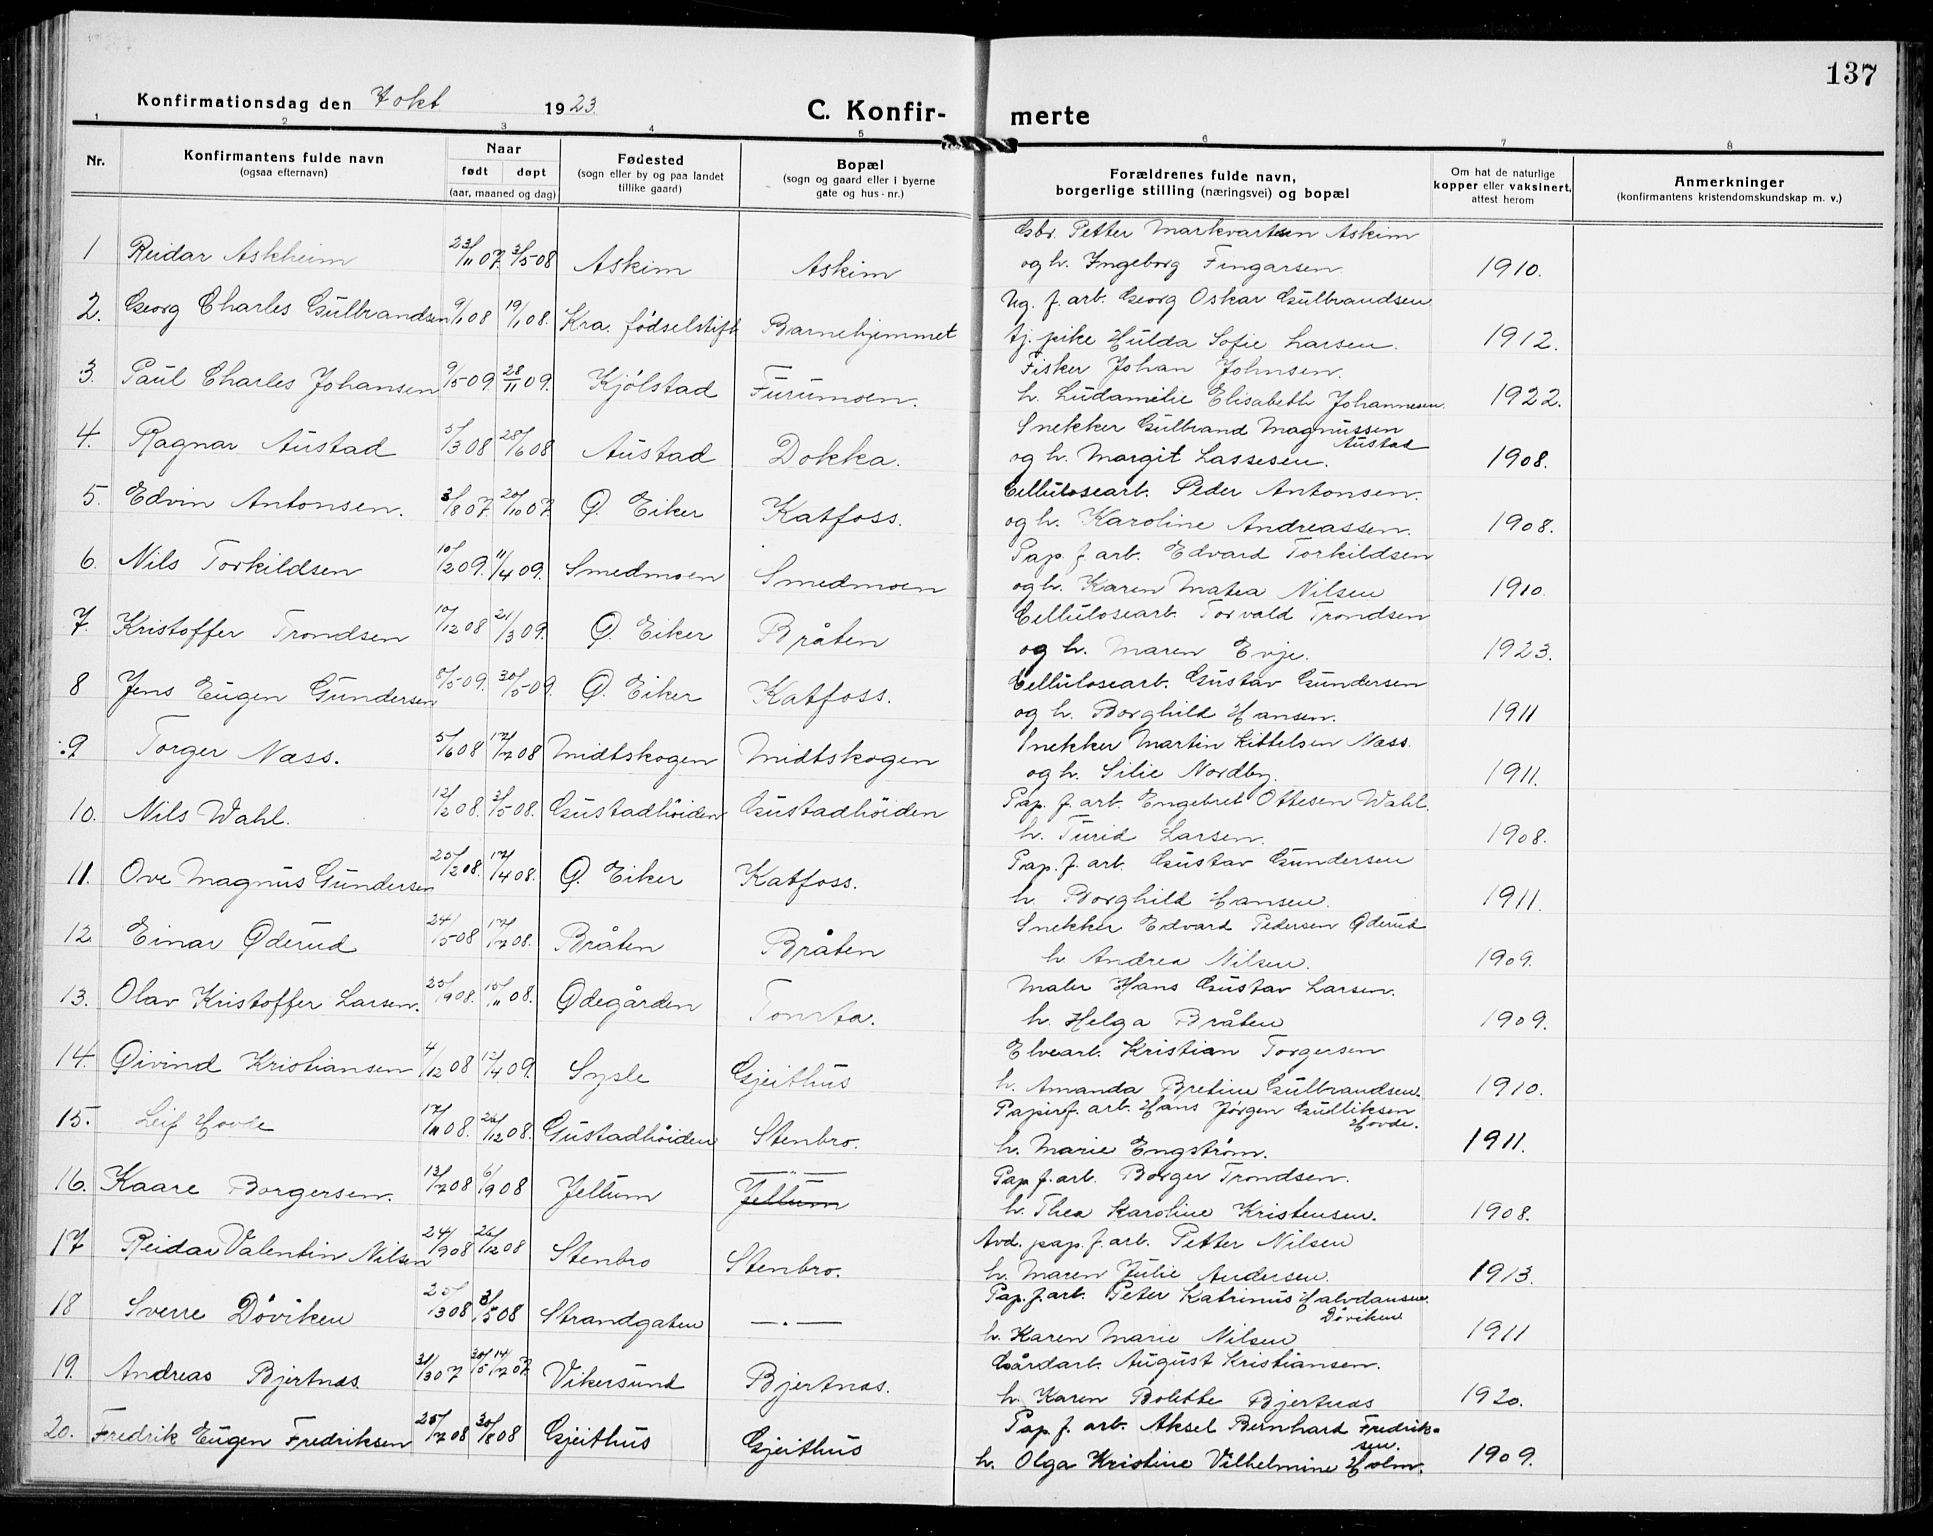 137
Konfirmationsdag den 7 okt 1923.
C. Konfir- merte
1 2 3 4 5 6 7 8
Nr.
Konfirmantens fulde navn
(ogsaa efternavn)
Naar
født døpt
(aar, maaned og dag)
Fødested
(sogn eller by og paa landet
tillike gaard)
Bopæl
(sogn og gaard eller i byerne
gate og hus-nr.)
Forældrenes fulde navn,
borgerlige stilling (næringsvei) og bopæl
Om hat de naturlige
kopper eller vaksinert,
attest herom
Anmerkninger
(konfirmantens kristendomskundskap m. v.)
Gbr. Petter Markvartsen Askim
1 Reidar Askheim 23/11 07. 3/5 08 Askim Askim og h. Ingeborg Fingarsen. 1910.
Ug. f. arb. Georg Oskar Gulbrandsen
2. Georg Charles Gulbrandsen 9/1 08 19/1 08. Kra. fødselstift Barnehjemmet tj. pike Hulda Sofie Larsen. 1912.
Fisker Johan Johnsen.
3. Paul Charles Johansen 9/5 09. 28/11 09. Kjølstad Furumoen. h. Ludamelie Elisabeth Johannesen. 1922.
Snekker Gulbrand Magnussen Austad
4. Ragnar Austad 5/3 08 28/6 08 Austad Dokka. og h. Margit Lassesen. 1908.
Cellulosearb. Peder Antonsen.
5. Edvin Antonsen. 3/8 07. 20/10 07. Ø. Eiker Katfoss. og h. Karoline Andreassen. 1908.
Pap. f. arb. Edvard Torkildsen
6. Nils Torkildsen 10/2 09. 11/4 09. Smedmoen Smedmoen og h. Karen Matea Nilsen 1910.
Cellulosearb. Torvald Trondsen
7. Kristoffer Trondsen 10/12 08 21/3 09. Ø. Eiker Bråten og h. Maren Evje. 1923.
Cellulosearb. Gustav Gundersen
8 Jens Eugen Gundersen /5 09. 30/5 09. Ø. Eiker Katfoss. og h. Borghild Hansen. 1911
Snekker Martin Kittelsen Næss.
9 Torger Næss. 5/6 08 12/7 08 Midtskogen Midtskogen og h. Silie Nordby. 1911.
Pap. f. arb. Engebret Ottesen Wahl.
10. Nils Wahl. 12/2 08. 3/5 08. Gustadhöiden Gustadhöiden h. Turid Larsen. 1908.
Pap. f. arb. Gustav Gundersen
11. Ove Magnus Gundersen 25/2 08. 17/4 08. Ø. Eiker Katfoss. h. Borghild Hansen. 1911.
Snekker Edvard Pedersen Øderud
12 Einar Øderud 24/5 08 12/7 08. Bråten Bråten h. Andrea Nilsen. 1909.
Maler Hans Gustav Larsen.
13. Olav Kristoffer Larsen. 25/9 08. 15/11 08. Ødegården Tomta. h. Helga Bråten 1909.
Elvearb. Kristian Torgersen
14. Øivind Kristiansen 4/12 08 12/4 09. Sysle Gjeithus h. Amanda Bretine Gulbrandsen. 1910.
Papirf. arb. Hans Jørgen Gulliksen Hovde.
15. Leif Hovde 17/11 08. 26/12 08. Gustadhöiden Stenbro. h. Marie Engstrøm. 1911.
Pap. f. arb. Borger Trondsen.
16. Kaare Borgersen. 13/7 08 6/9 08 Jellum — „ — Jellum h. Thea Karoline Kristensen. 1908.
Avd. pap. f. arb. Petter Nilsen
17 Reidar Valentin Nilsen 24/9 08 26/12 08 Stenbro Stenbro. h. Maren Julie Andersen. 1913.
Pap. f. arb. Peter Katrinus Halvdansen. Døviken
18 Sverre Døviken 25/3 08 3/5 08 Strandgaten — . — h. Karen Marie Nilsen 1911
Gårdarb. August Kristiansen.
19. Andreas Bjertnæs. 31/3 07 30/5 14/7 07. Vikersund Bjertnæs. h. Karen Bolette Bjertnæs 1920.
Pap. f. arb. Aksel Bernhard Fredriksen.
20. Fredrik Eugen Fredriksen 25/7 08 30/8 08 Gjeithus Gjeithus h. Olga Kristine Vilhelmine Holm. 1909.